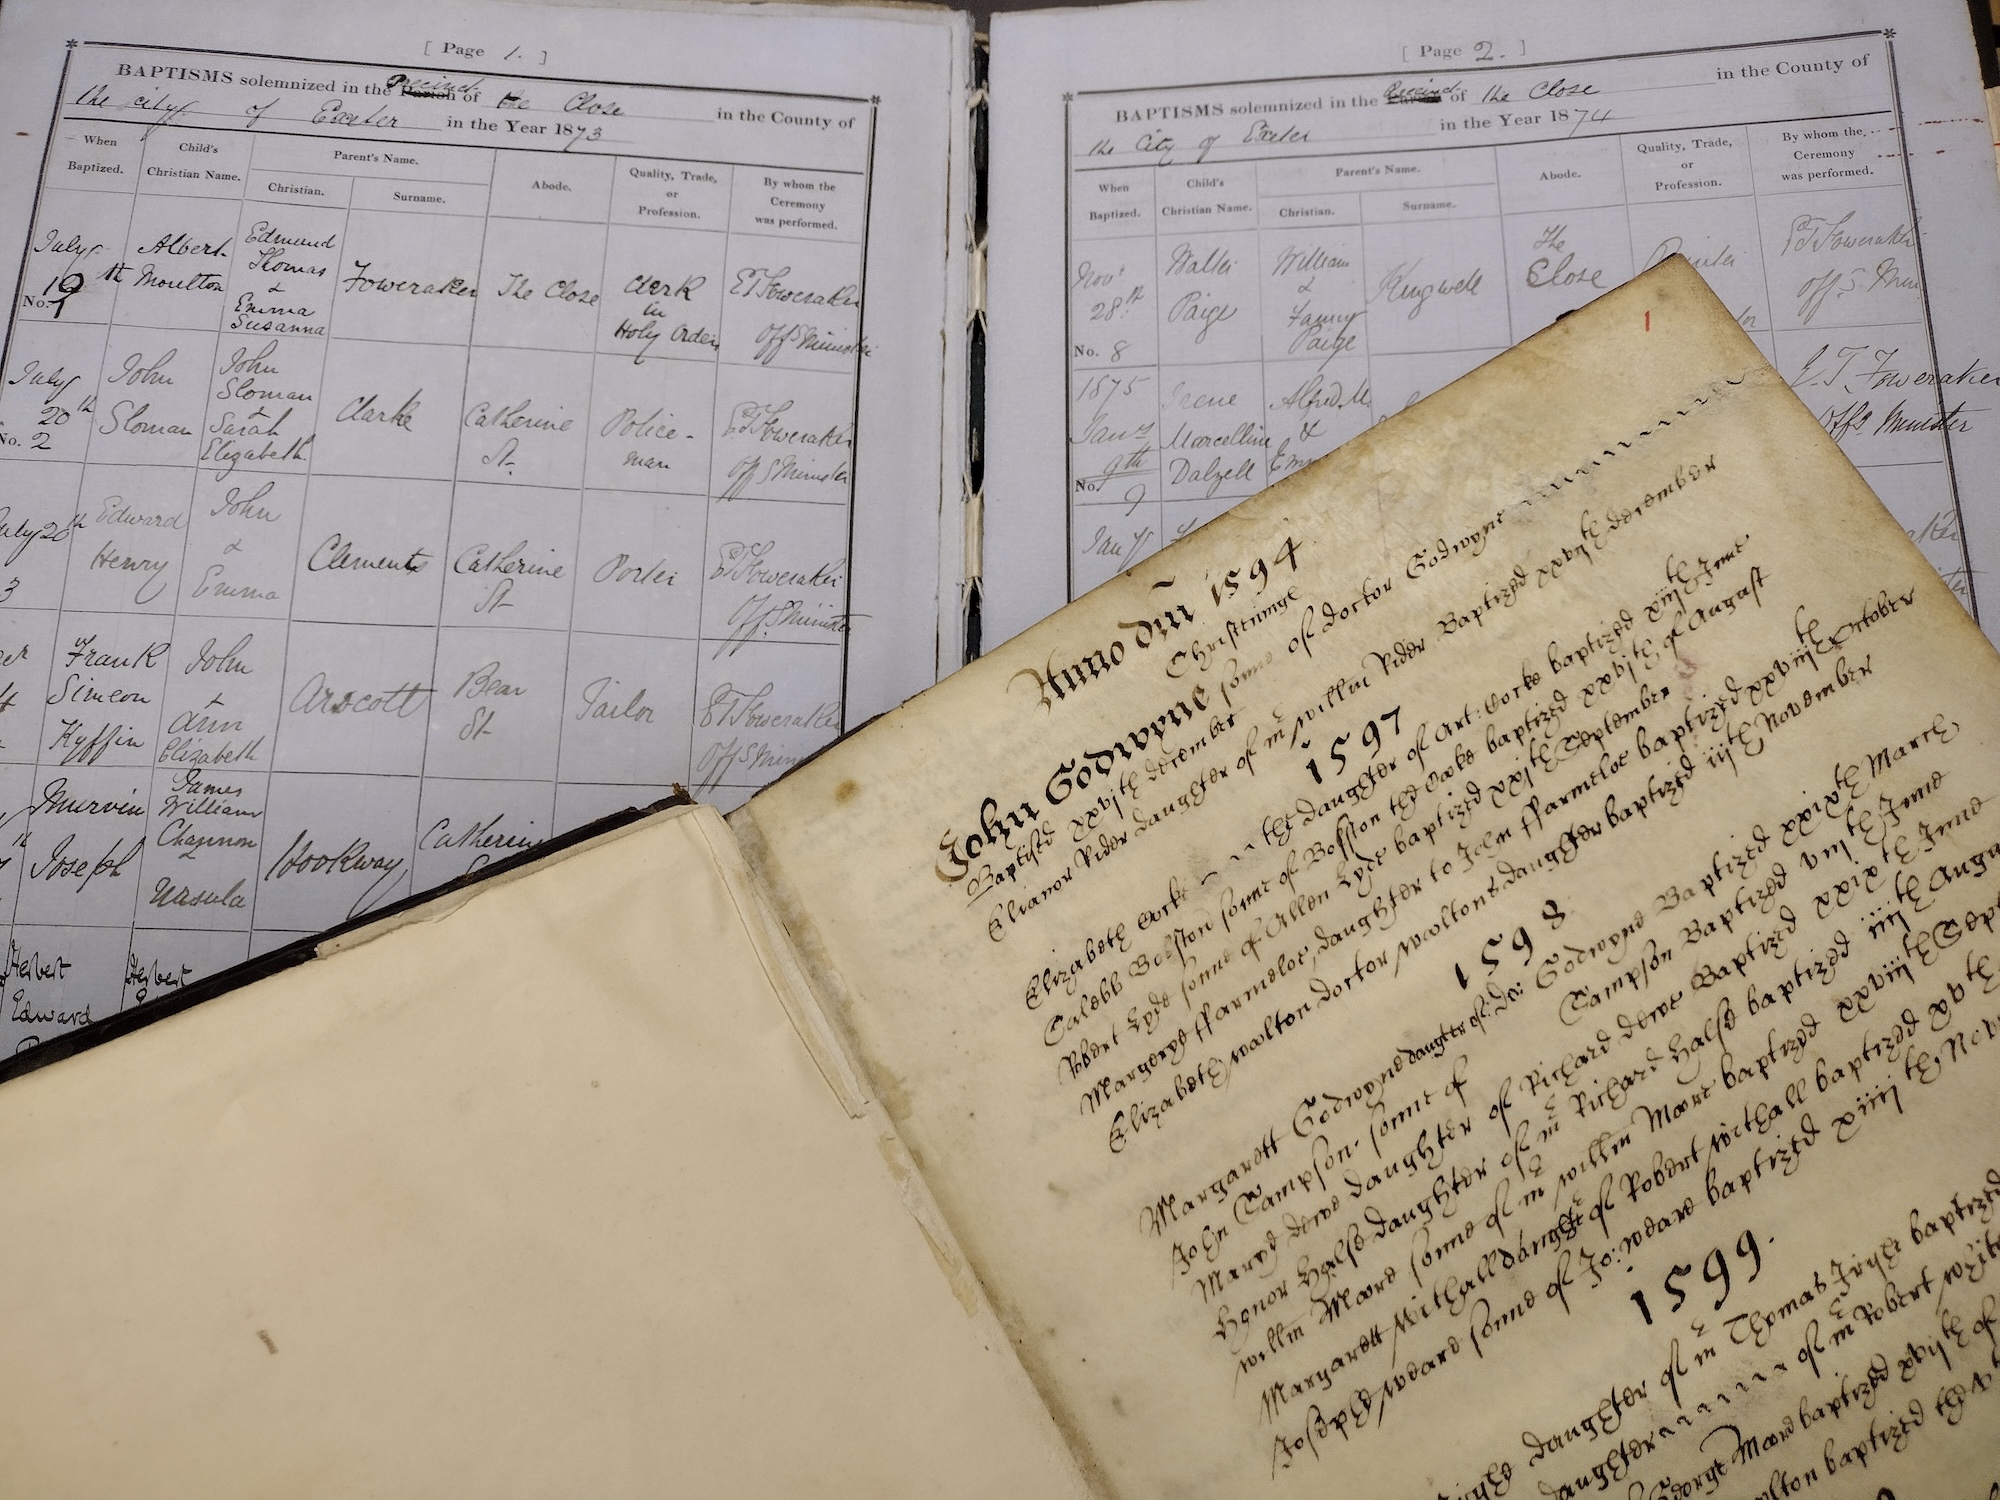 [ Page 1. ]
BAPTISMS solemnized in the Precinct Parish of the Close in the County of
the city of Exeter in the Year 1873
When Baptized.
Child's Christian Name.
Parent's Name.
Christian.
Surname.
Abode.
Quality, Trade, or Profession.
By whom the Ceremony was performed.
July
19th
No. 1
Albert
Moulton
Edmund
Thomas
&
Emma
Susanna
Foweraker
The Close
Clerk
in
Holy Orders
ET Foweraker
Off S Minister
July
20th
No. 2
John
Sloman
John
Sloman
&
Sarah
Elizabeth
Clarke
Catherine
St.
Police-
man
ET Foweraker
Off S Minister
July 20th
3
Edward
Henry
John
&
Emma
Clements
Catherine
St
Porter
ET Foweraker
Off S Minister
Frank
Simeon
Kyffin
John
&
Ann
Elizabeth
Arscott
Bear
St
Tailor
ET Foweraker
Off S Min
Joseph
James
William
Channon
&
Ursula
Hookway
Catherine
Herbert
Edward
Herbert
[ Page 2. ]
BAPTISMS solemnized in the Precinct Parish of the Close in the County of
the City of Exeter in the Year 1874
When Baptized.
Child's Christian Name.
Parent's Name.
Christian.
Surname.
Abode.
Quality, Trade, or Profession.
By whom the Ceremony was performed.
Novr
28th
No. 8
Walter
Paige
William
&
Fanny
Paige
Kingwell
The
Close
ET Foweraker
Off. S. Min
1875
Jany
9th
No. 9
Irene
Marcelline
Dalzell
Alfred. M.
&
E. T. Foweraker
Offs. Minister
Jany
1
Anno dni 1594
Christninge
John Godwyne sonne of doctor Godwyne
Baptised xxvijth december
Elianor Rider daughter of mr willm Rider Baptized xxvijth december
1597
Elizabeth Cocke the daughter of Art: Cocke baptized xiijth June
Robert Lyde sonne of Allen Lyde baptized xxijth September
Margerye ffarmeloe, daughter to John ffarmeloe baptized xxviijth October
Elizabeth woolton doctor wooltons daughter baptized iiijth November
1598
Margarett Godwyne daughter of: dr: Godwyne Baptized xxixth March
John Sampson sonne of Sampson Baptized vth June
Marye dewe daughter of Richard dewe Baptized xxixth June
Honor Halse daughter of mr Richard Halse baptized iiijth Augu
willm Moore sonne of mr willm Moore baptized xxviijth Sept
Margarett withall daughter of Robert withall baptized xxth
Joseph weare sonne of Jo: weare baptized xiiijth Nov
1599.
daughter of mr Thomas Irishe baptized
daughter of mr Robert
George Moore baptized xvijth of
baptized the